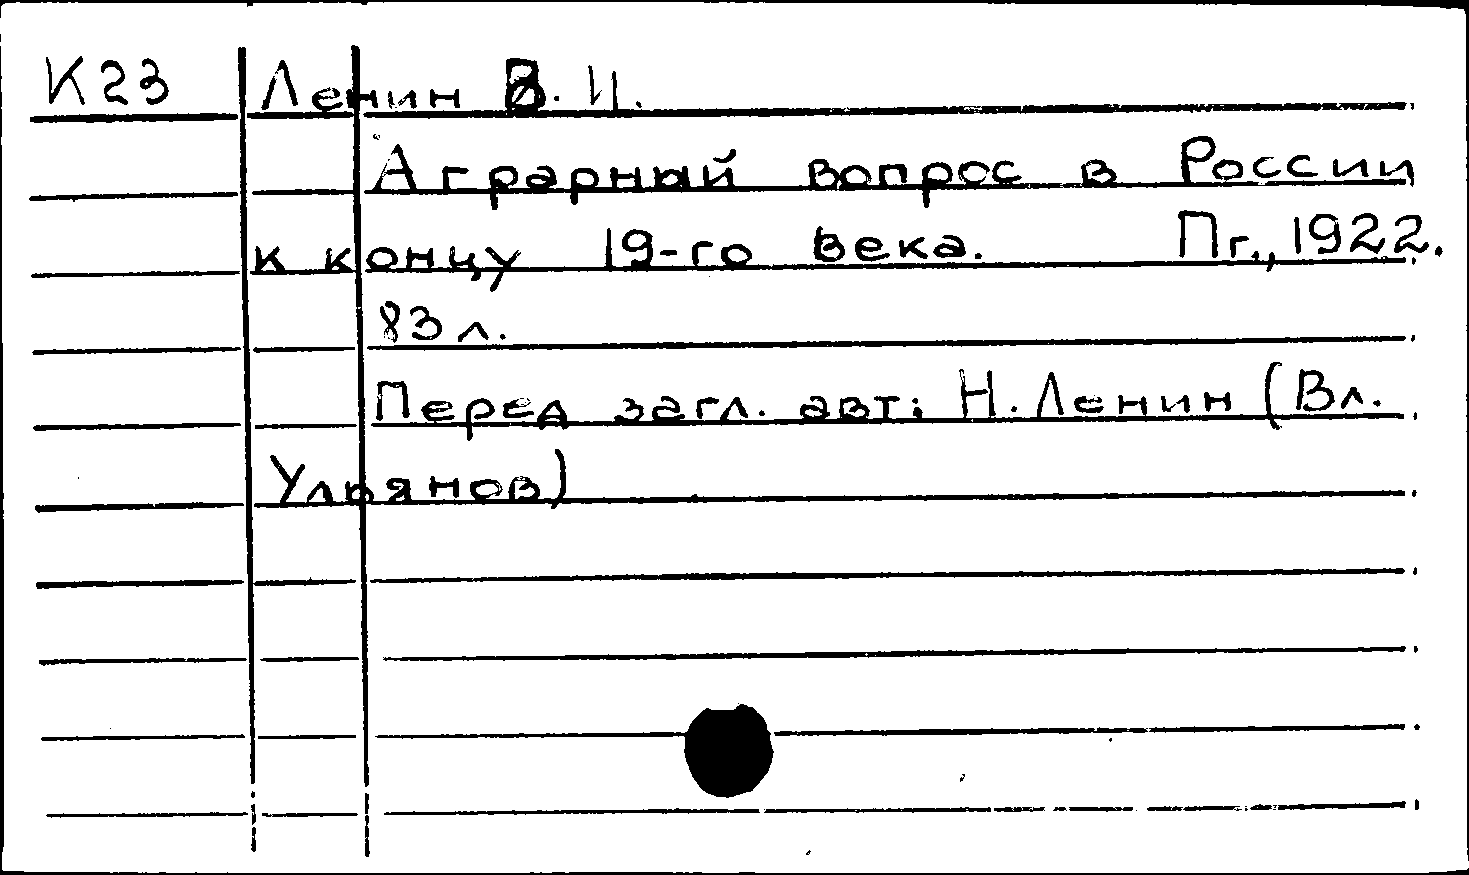 К23 Ленин В. И.
Аграрный вопрос в России
к концу 19-го века. Пг., 1922.
83 л.
Перед загл. авт: Н. Ленин (Вл.
Ульянов)